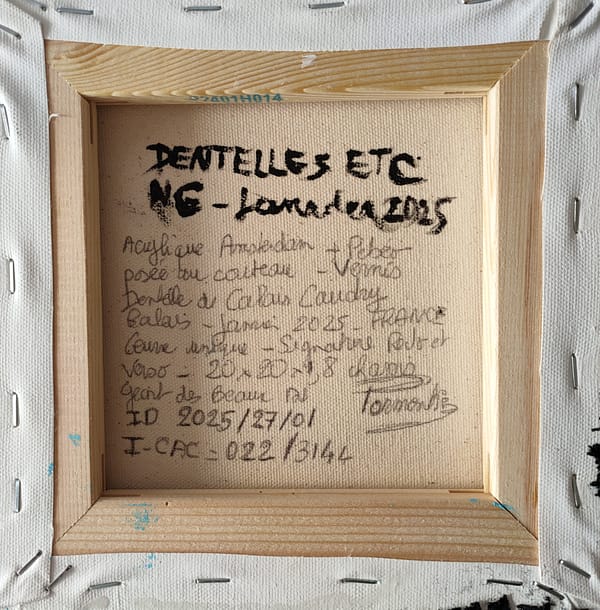 DENTELLES ETC
NG - 2025
Acrylique Amsterdam + Pebeo
posée au couteau - Vernis
Dentelle de Calais Caudry
Calais - Janvier 2025 - FRANCE
Œuvre unique - Signature Recto et
Verso - 20 x 20 x 1,8
Géant des Beaux
ID 2025/27/01
I-CAC = 022/3144